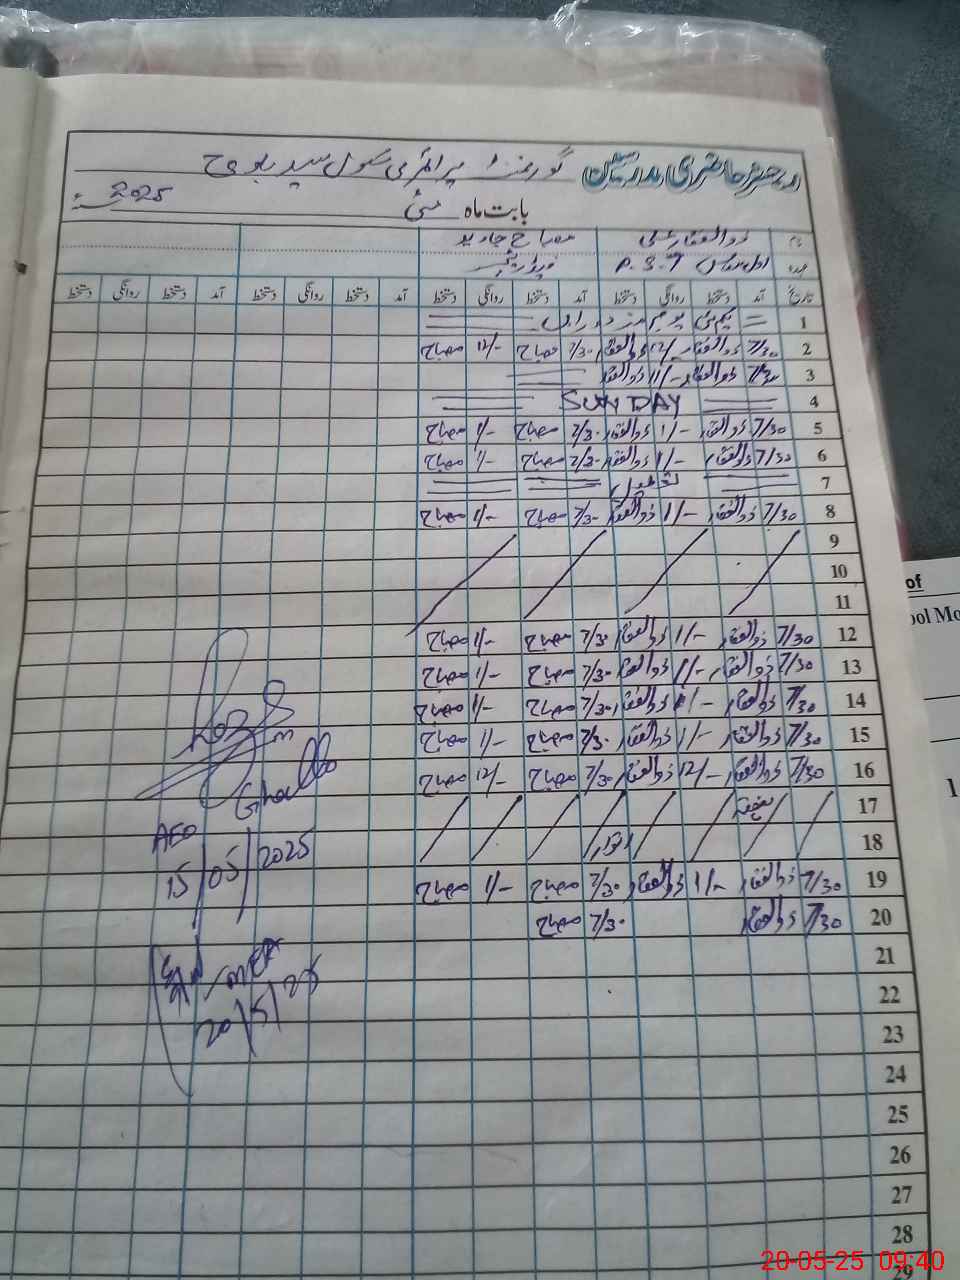 رجسٹر حاضری مدرسین گورنمنٹ پرائمری سکول سید بلوچ
بابت ماہ مئی 2025
نام ذوالفقار علی مصباح جاوید
عہدہ P.S.T
تاریخ آمد دستخط روانگی دستخط آمد دستخط روانگی دستخط آمد دستخط روانگی دستخط آمد دستخط روانگی دستخط
1 یکم مئی یوم مزدوراں
2 7/30 ذوالفقار 12/- ذوالفقار 7/30 مصباح 12/- مصباح
3 7/30 ذوالفقار 11/- ذوالفقار
4 SUNDAY
5 7/30 ذوالفقار 1/- ذوالفقار 7/30 مصباح 1/- مصباح
6 7/30 ذوالفقار 1/- ذوالفقار 7/30 مصباح 1/- مصباح
7 تعطیل
8 7/30 ذوالفقار 1/- ذوالفقار 7/30 مصباح 1/- مصباح
9
10
11
12 7/30 ذوالفقار 1/- ذوالفقار 7/30 مصباح 1/- مصباح
13 7/30 ذوالفقار 1/- ذوالفقار 7/30 مصباح 1/- مصباح
14 7/30 ذوالفقار 1/- ذوالفقار 7/30 مصباح 1/- مصباح
15 7/30 ذوالفقار 1/- ذوالفقار 7/30 مصباح 1/- مصباح
16 7/30 ذوالفقار 12/- ذوالفقار 7/30 مصباح 12/- مصباح
17 ہفتہ
18 اتوار
19 7/30 ذوالفقار 1/- ذوالفقار 7/30 مصباح 1/- مصباح
20 7/30 ذوالفقار 7/30 مصباح
21
22
23
24
25
26
27
28
29
AEO
15/05/2025
20/5/25
of
ool Mo
1
20-05-25 09:40